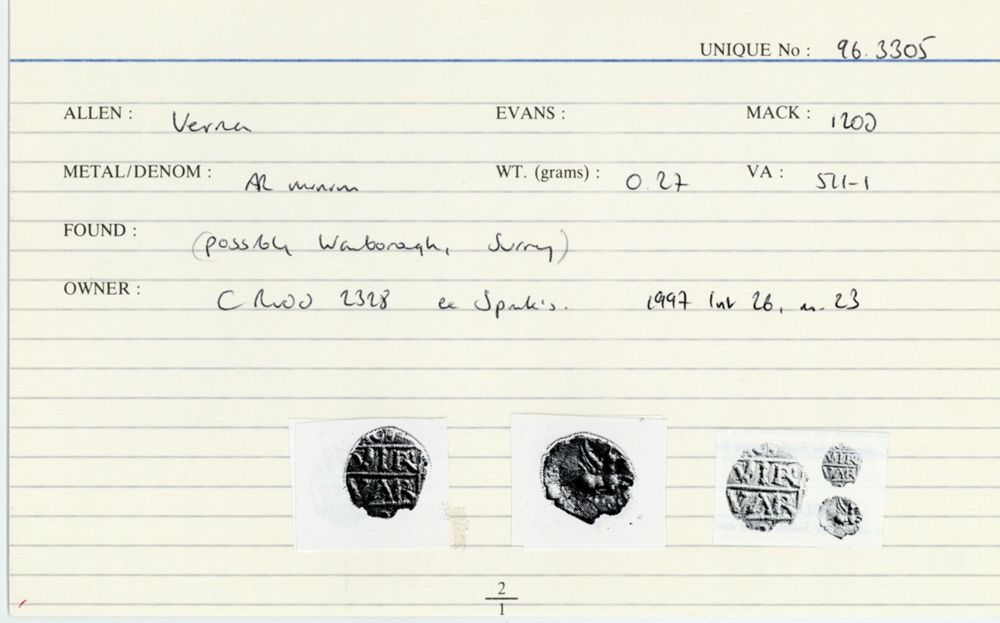 UNIQUE No : 96.3305
ALLEN : Verica EVANS : MACK :
METAL/DENOM : AR minim WT. (grams) : 0.27 VA : 511-1
FOUND : (possibly Wanborough, Surrey)
OWNER : C Rudd 2328 ex Spink's. 1997 list 26, n. 23
VIR
VAR
VIR
VAR
VIR
VAR
2
1